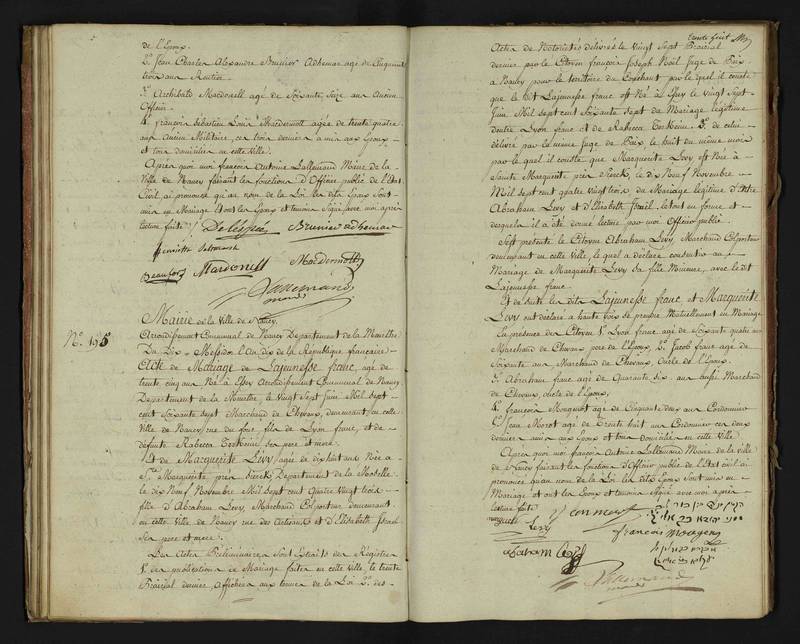 de l'Epoux.
2.° Jean Charles Alexandre Brunier Adhemar agé de Cinquante
trois ans Rentier.
3.° Archibald Macdonell agé de Soixante Seize ans Ancien
Officier.
4.° François Sébastien Louis Macdermott agée de trente quatre
ans Ancien Militaire, ces trois derniers amis aux Epoux
et tous domiciliés en cette Ville.
Après quoi moi françois Antoine Lallemand Maire de la
Ville de Nancy faisant les fonctions d'Officier public de l'Etat
Civil, ai prononcé qu'au nom de la Loi les dits Epoux Sont
unis en Mariage et ont les Epoux et temoins Signé avec moi après
lecture faite /.
Brunier adhemar
Henriette
Beaufort Mardonell MacDermott
Lallemand
maire
N.° 195
Mairie de la Ville de Nancy.
Arrondissement Communal de Nancy Departement de la Meurthe
Du Dix Messidor l'An dix de la Republique française
Acte de Mariage de Lajeunesse franc, agé de
trente cinq ans Né à Essey Arrondissement Communal de Nancy
Departement de la Meurthe, le vingt Sept Juin Mil Sept
cent Soixante Sept Marchand de Chevaux, demeurant en cette
Ville de Nancy rue du fils de Lyon franc, et de
défunte Rabecca ses père et mere.
Et de Marguerite Lévy agée de dix huit ans Née à
S.te Marguerite près Departement de la Moselle
le dix Neuf Novembre Mil Sept cent Quatre Vingt trois
fille d'Abraham Levy, Marchand Colporteur demeurant
en cette Ville de Nancy rue des et d'Elisabeth Israël
Ses pere et mere.
Les Actes Préliminaires sont Extraits des Registres
1.° des publications de Mariage faites en cette ville, le trente
Prairial dernier, affichées aux termes de la Loi 2.° des
Actes de Notoriétés délivrés le Vingt Sept Prairial
dernier par le Citoyen françois Joseph Noël Juge de Paix
à Nancy pour le territoire du Couchant par lequel il conste
que le dit Lajeunesse franc est Né à Essey le Vingt Sept
Juin Mil Sept cent Soixante Sept du Mariage légitime
d'entre Lyon franc et de Rabecca 3.° de celui
délivré par le même Juge de Paix le huit du même mois
par lequel il conste que Marguerite Levy est Née à
Sainte Marguerite près le dix Neuf Novembre
Mil Sept cent Quatre Vingt trois du Mariage légitime d'entre
Abraham Levy et d'Elisabeth Israël, le tout en forme et
desquels il a été donné lecture par moi Officier public.
S'est présenté le Citoyen Abraham Lévy Marchand Colporteur
demeurant en cette Ville, le quel a declaré consentir au
Mariage de Marguerite Levy Sa fille Mineure, avec le dit
Lajeunesse franc.
Et de Suite les dits Lajeunesse franc et Marguerite
Levy ont declaré à haute voix se prendre Mutuellement en Mariage
En presence des Citoyens 1.° Lyon franc agé de Soixante quatre ans
Marchand de Chevaux pere de l'Epoux, 2.° Jacob franc agé de
Soixante ans Marchand de Chevaux, oncle de l'Epoux.
3.° Abraham franc agé de Quarante Six ans aussi Marchand
de Chevaux, oncle de l'Epoux,
4.° françois agé de Cinquante deux ans Cordonnier
5.° Jean Morot agé de Trente huit ans Cordonnier ces deux
derniers amis aux Epoux et tous domiciliés en cette Ville.
Après quoi moi françois Antoine Lallemand Maire de la Ville
de Nancy faisant les fonctions d'Officier public de l'Etat civil ai
prononcé qu'au nom de la Loi les dits Epoux Sont unis en
Mariage et ont les Epoux et temoins Signé avec moi après
lecture faite
Levy
francois
Lallemand
maire